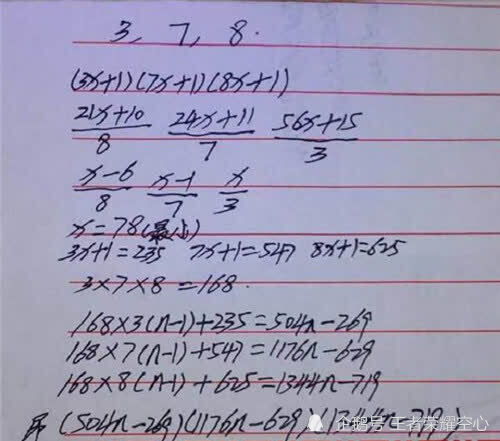 3, 7, 8.
(3x+1)(7x+1)(8x+1)
21x+10/8 24x+11/7 56x+15/3
x-6/8 x-1/7 x/3
x=78(最小)
3x+1=235 7x+1=547 8x+1=625
3×7×8=168.
168×3(n-1)+235=504n-269
168×7(n-1)+547=1176n-629
168×8(n-1)+625=1344n-719
(504n-269)(1176n-629)(1344n-719)
企鹅号 王者荣耀空心